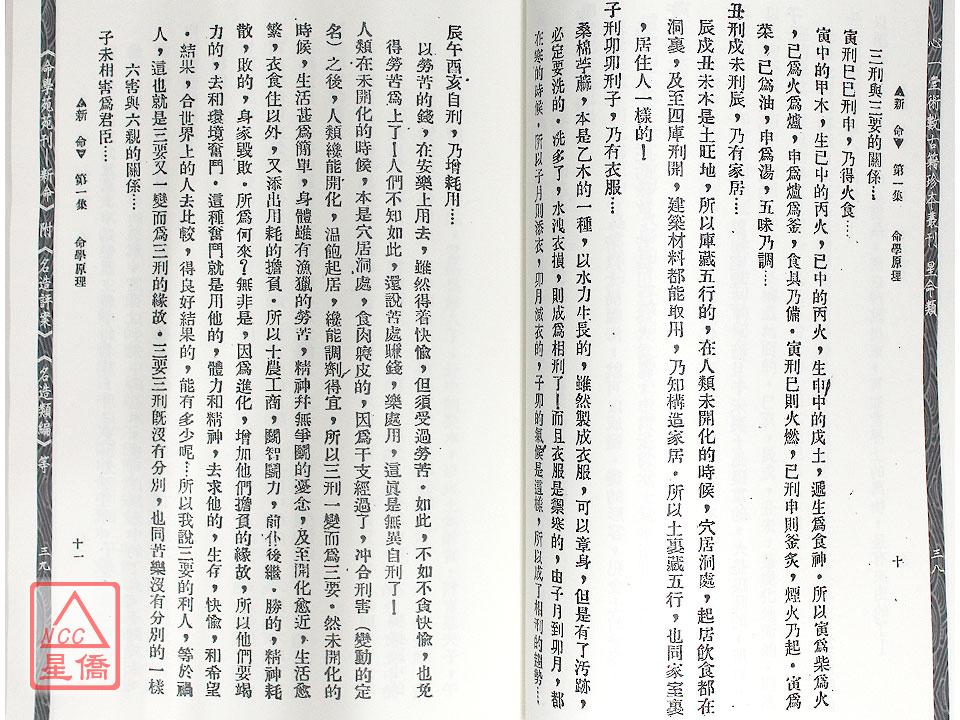 心一堂術數古籍珍本叢刊 星命類
三八
▲新　命▼　第一集　命學原理
十
三刑與三要的關係…
寅刑巳巳刑申，乃得火食…
寅中的甲木，生巳中的丙火，巳中的丙火，生申中的戊土，遞生爲食神．所以寅爲柴爲火
，巳爲火爲爐，申爲爐爲釜，食具乃備．寅刑巳則火燃，巳刑申則釜炙，煙火乃起．寅爲
菜，巳爲油，申爲湯，五味乃調…
丑刑戍未刑辰，乃有家居…
辰戍丑未本是土旺地，所以庫藏五行的，在人類未開化的時候，穴居洞處，起居飲食都在
洞裏，及至四庫刑開，建築材料都能取用，乃知構造家居．所以土裏藏五行，也同家室裏
，居住人一樣的！
子刑卯卯刑子，乃有衣服…
桑棉苧蔴，本是乙木的一種，以水力生長的，雖然製成衣服，可以章身，但是有了污跡，
必定要洗的．洗多了，水洩衣損，則成爲相刑了！而且衣服是禦寒的，由子月到卯月，都
在寒的時候．所以子月則添衣，卯月減衣的，子卯的氣候是這樣，所以成了相刑的趨勢…
辰午酉亥自刑，乃增耗用…
以勞苦的錢，在安樂上用去，雖然得着快愉，但須受過勞苦．如此，不如不貪快愉，也免
得勞苦爲上了！人們不知如此，還說苦處賺錢，樂處用，這眞是無異自刑了！
人類在未開化的時候，本是穴居洞處，食肉寢皮的，因爲干支經過了，冲合刑害（變動的定
名）之後，人類纔能開化，温飽起居，纔能調劑得宜，所以三刑一變而爲三要．然未開化的
時候，生活甚爲簡單，身體雖有漁獵的勞苦，精神幷無爭鬬的憂念，及至開化愈近，生活愈
繁，衣食住以外，又添出用耗的擔負．所以士農工商，鬬智鬬力，前仆後繼．勝的，精神耗
散，敗的，身家毀敗．所爲何來？無非是，因爲進化，增加他們擔負的緣故，所以他們要竭
力的，去和環境奮鬥．這種奮鬥就是用他的，體力和精神，去求他的，生存，快愉，和希望
．結果，合世界上的人去比較，得良好結果的，能有多少呢…所以我說三要的利人，等於禍
人，這也就是三要又一變而爲三刑的緣故．三要三刑旣沒有分別，也同苦樂沒有分別的一樣
六害與六親的關係…
子未相害爲君臣…
▲新　命▼　第一集　命學原理
十一
《命學苑苑刊—新命》附《名造評案》《名造類編》等
三九
NCC
星僑